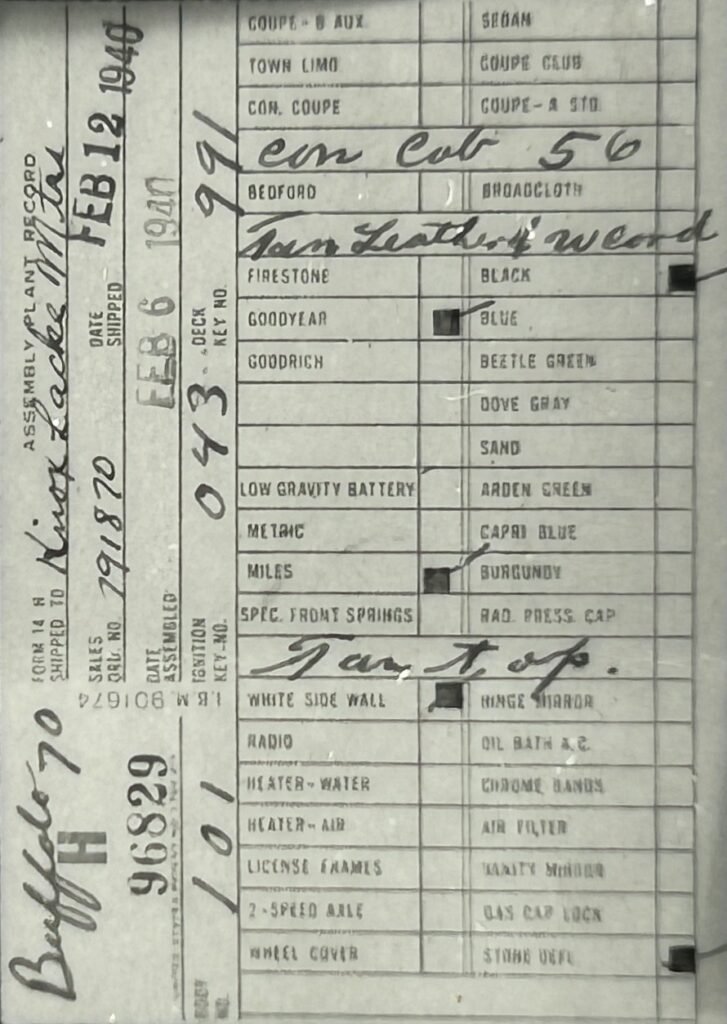 ASSEMBLY PLANT RECORD
FORM 14 H
SHIPPED TO Knox Lacke Mtrs
SALES ORD. NO. 791870 DATE SHIPPED FEB 12 1940
DATE ASSEMBLED FEB 6 1940
IGNITION KEY-NO. 043 DECK KEY NO. 991
I.B.M. 901674
Buffalo 70
H 96829
BODY NO. 101
COUPE - B AUX SEDAN
TOWN LIMO COUPE CLUB
CON. COUPE COUPE - A STD.
Con Cab 56
BEDFORD BROADCLOTH
Tan Leather & W Cord
FIRESTONE BLACK
GOODYEAR BLUE
GOODRICH BEETLE GREEN
DOVE GRAY
SAND
LOW GRAVITY BATTERY ARDEN GREEN
METRIC CAPRI BLUE
MILES BURGUNDY
SPEC. FRONT SPRINGS RAD. PRESS. CAP
Tan top.
WHITE SIDE WALL HINGE MIRROR
RADIO OIL BATH A.C.
HEATER - WATER CHROME BANDS
HEATER - AIR AIR FILTER
LICENSE FRAMES VANITY MIRROR
2 - SPEED AXLE GAS CAP LOCK
WHEEL COVER STONE DEFL